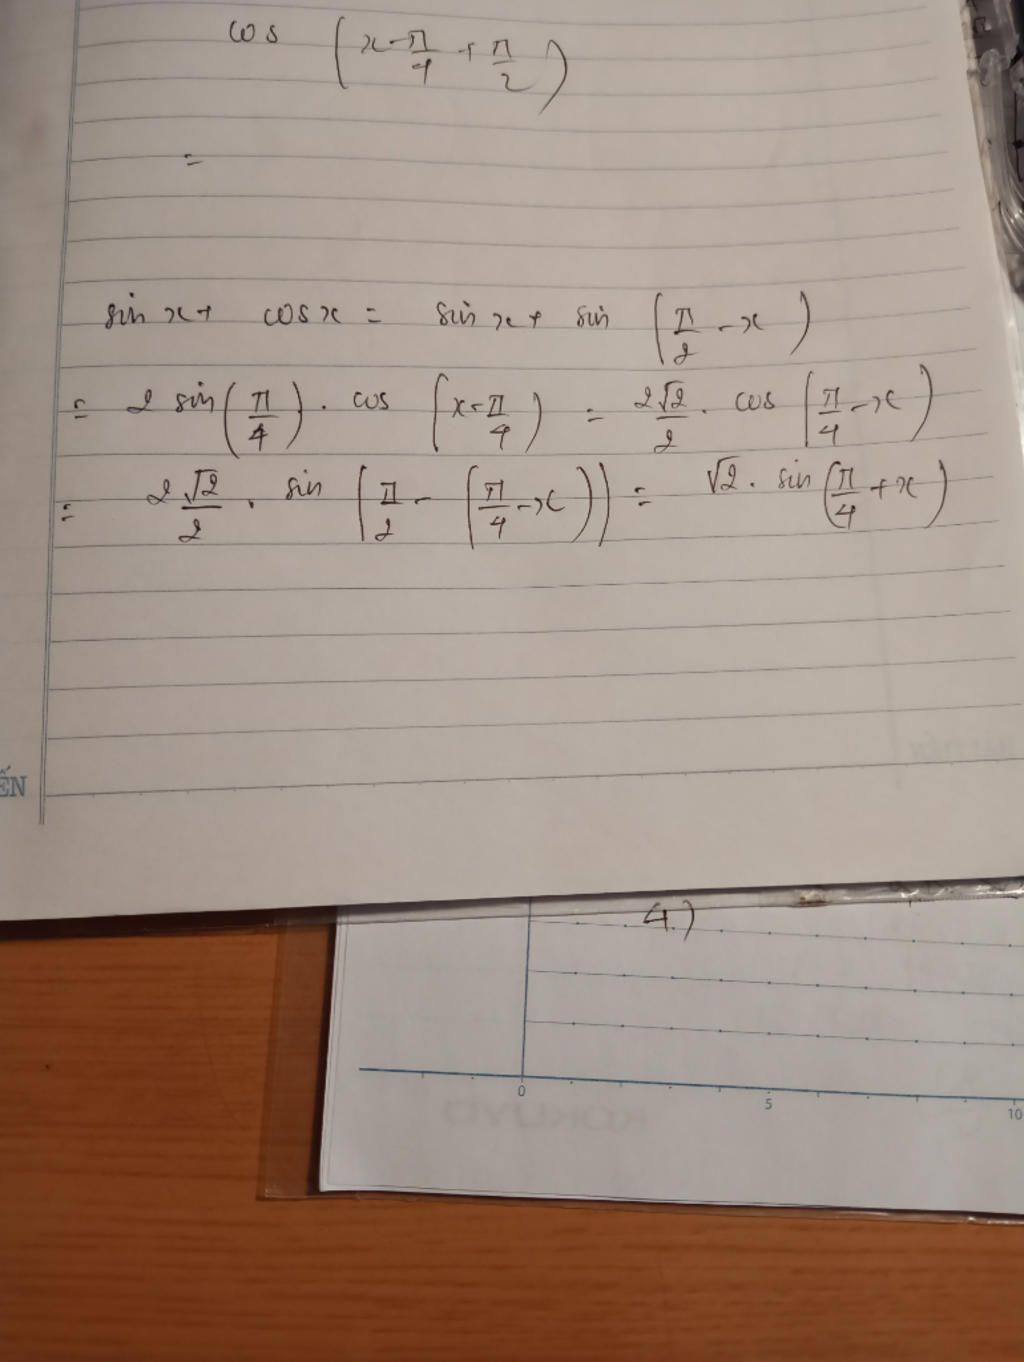 cos (x - π/4 + π/2)
=
sin x + cos x = sin x + sin (π/2 - x)
= 2 sin (π/4) . cos (x - π/4) = 2√2/2 . cos (π/4 - x)
= 2 √2/2 . sin (π/2 - (π/4 - x)) = √2 . sin (π/4 + x)
ẾN
4.)
0 5 10
KOKUYO